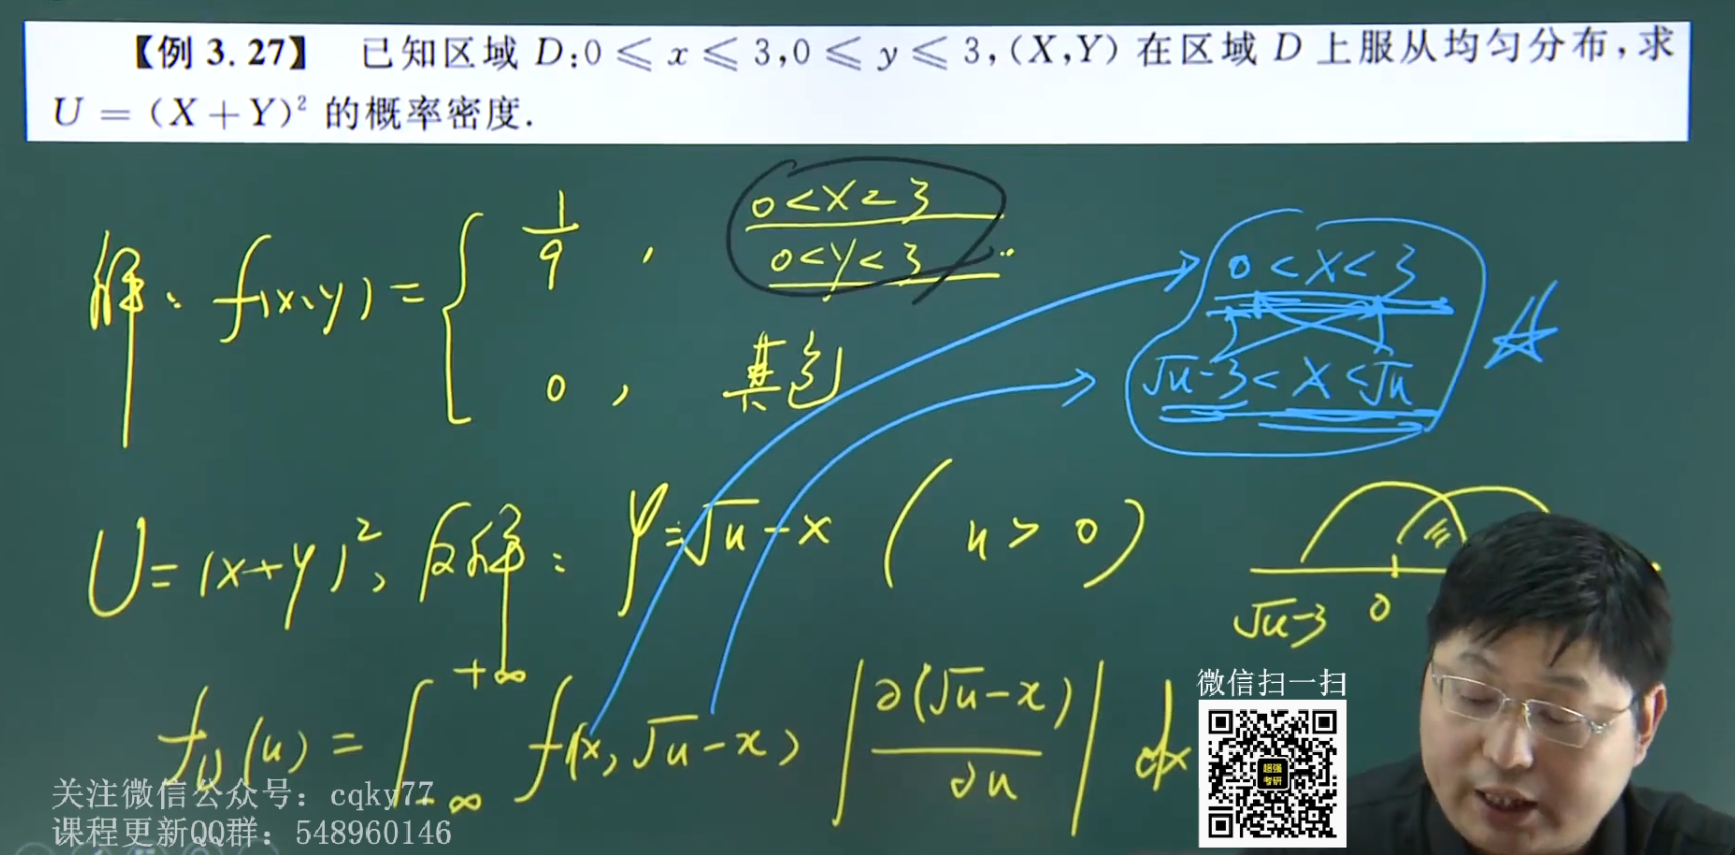 【例 3.27】 已知区域 D:0 ⩽ x ⩽ 3,0 ⩽ y ⩽ 3,(X,Y) 在区域 D 上服从均匀分布,求
U = (X+Y)² 的概率密度.
解: f(x,y) = { 1/9 , 0<x<3
0<y<3 ..
0 , 其它
0<x<3
√u-3<x<√u
U=(x+y)², 反解: y=√u-x ( u>0 )
√u-3 0
f_U(u) = ∫_{-∞}^{+∞} f(x,√u-x) |∂(√u-x)/∂u| dx
微信扫一扫
超强
考研
关注微信公众号: cqky77
课程更新QQ群: 548960146